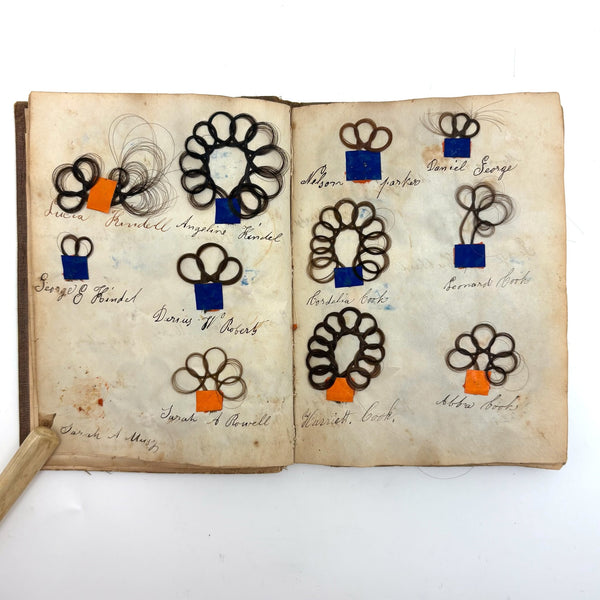 Lucia Kindell
Angeline Kindel
George S Kindel
Derius W Roberts
Sarah A Rowell
Sarah A
Nelson parker
Daniel George
Cordelia Cook
Leonard Cook
Harriett. Cook.
Abbra Cook